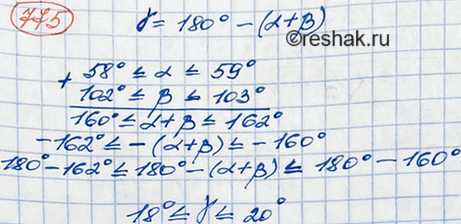 775
γ = 180° - (α+β)
©reshak.ru
+ 58° ≤ α ≤ 59°
102° ≤ β ≤ 103°
160° ≤ α+β ≤ 162°
-162° ≤ -(α+β) ≤ -160°
180° - 162° ≤ 180° - (α+β) ≤ 180° - 160°
18° ≤ γ ≤ 20°